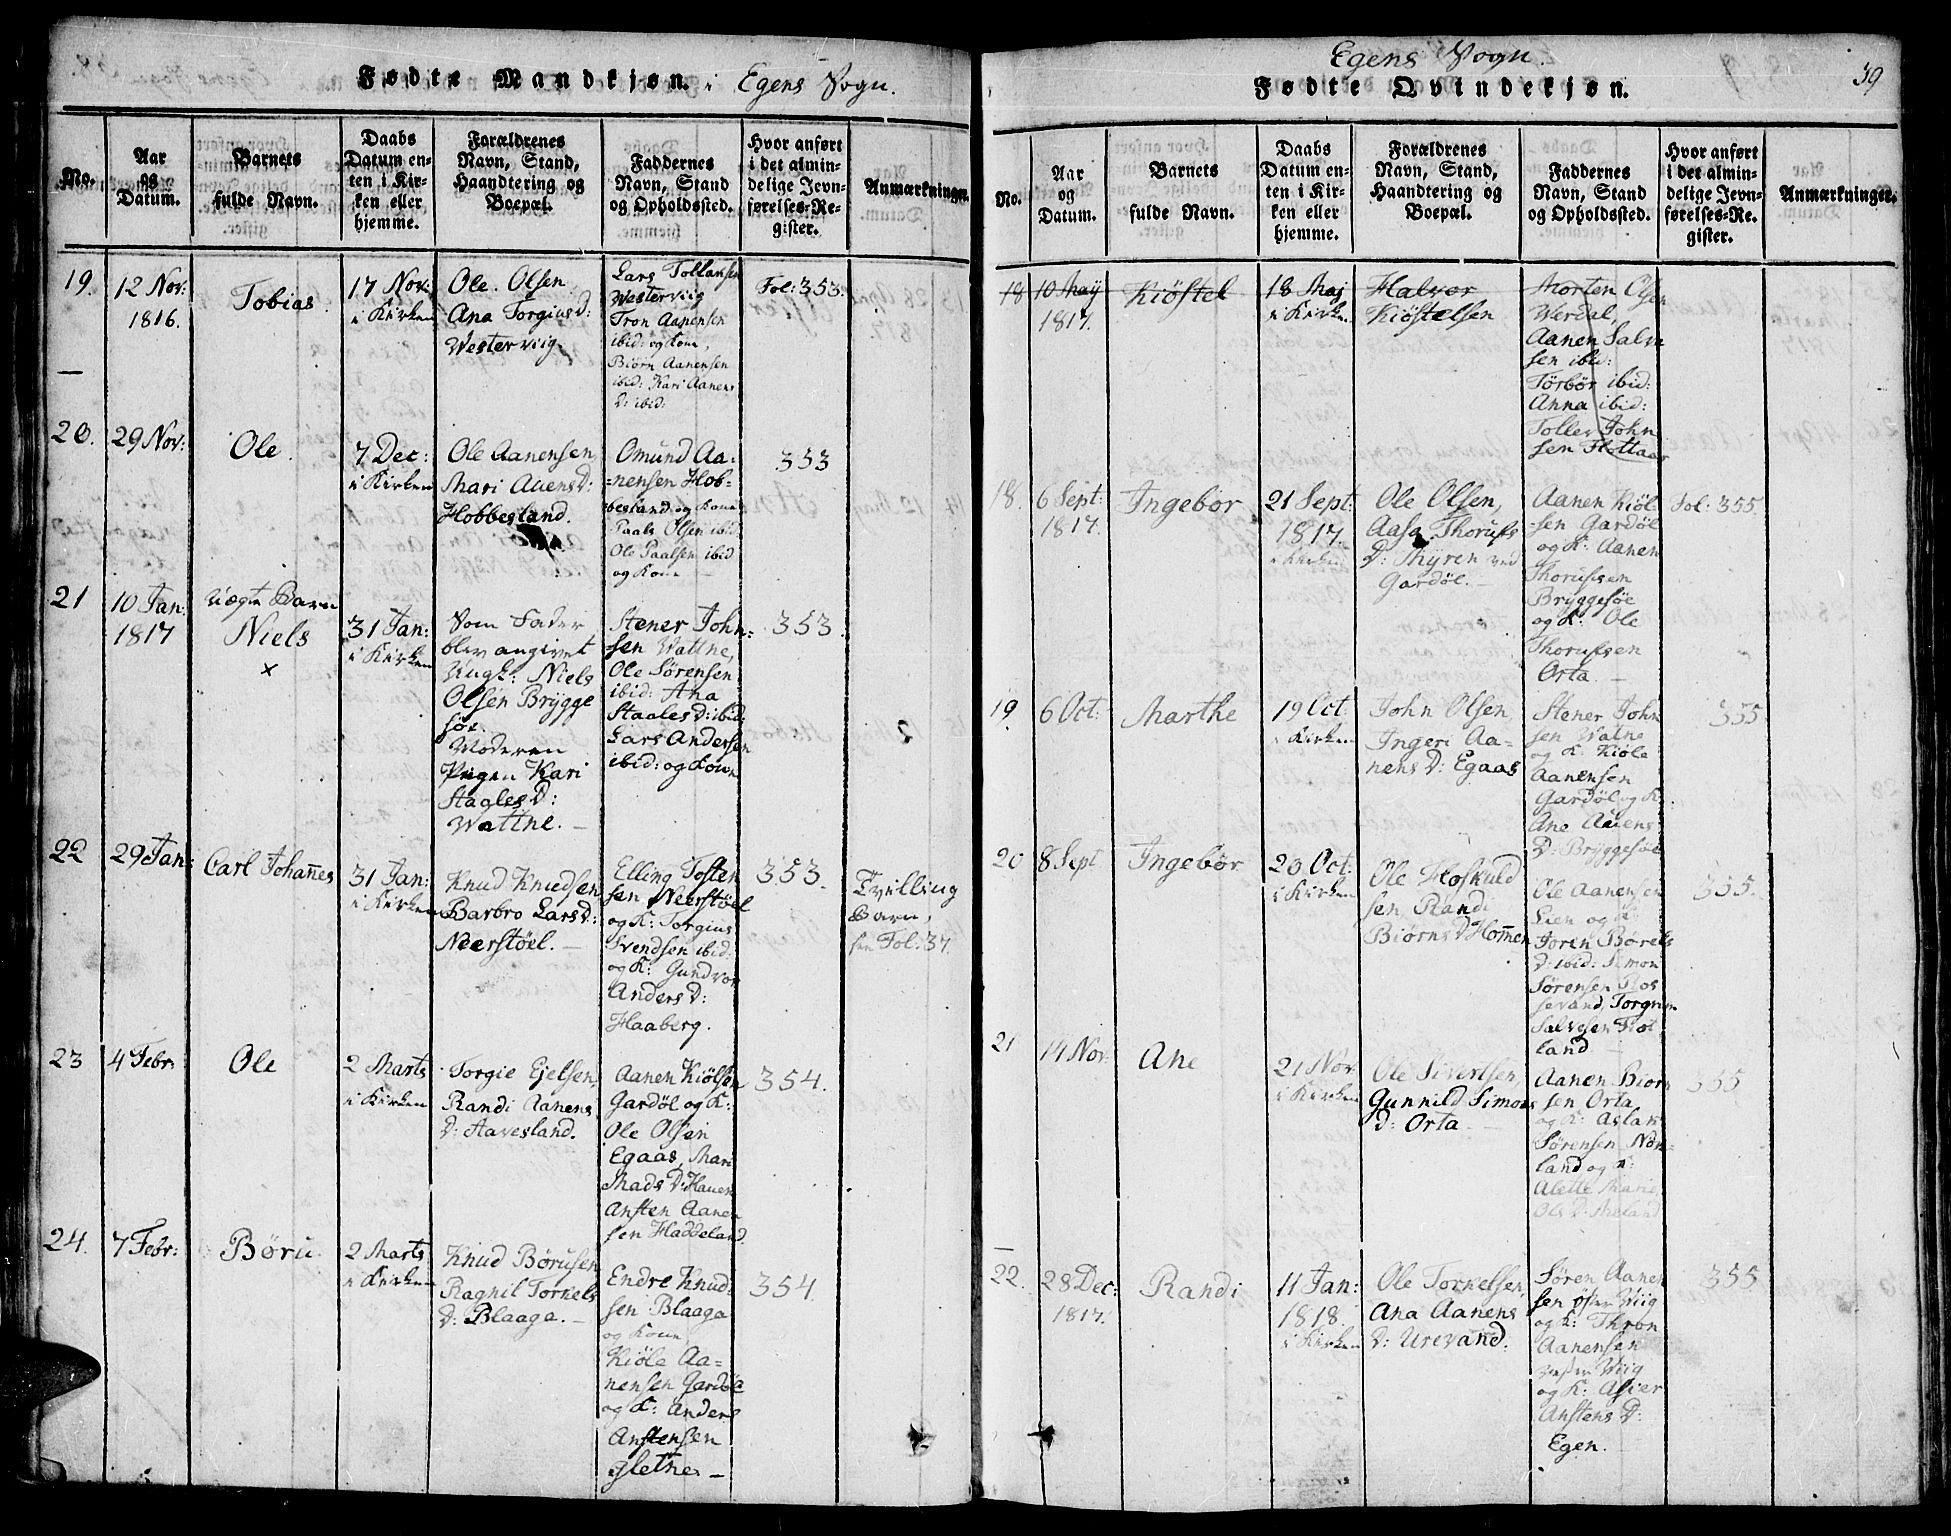 Fødte Mandkjøn. i Egens Sogn.
No.
Aar
og
Datum.
Barnets
fulde Navn.
Daabs
Datum en-
ten i Kir-
ken eller
hjemme.
Forældrenes
Navn, Stand,
Haandtering og
Boepæl.
Faddernes
Navn, Stand
og Opholdssted.
Hvor anført
i det almin-
delige Jevn-
førelses-Re-
gister.
Anmærkninger.
19.
12 Nov:
1816.
Tobias.
17 Nov:
i Kirken
Ole Olsen,
Ana Torgius D:
Westerviig.
Lars Tollansen
Westerviig
Tron Aanensen
ibid: og Kone,
Biørn Aanensen
ibid: Kari Aanens
D: ibid:
Fol: 353.
20.
29 Nov:
Ole.
7 Dec:
i Kirken
Ole Aanensen
Mari Auens D:
Hobbesland.
Omund Aa=
=nensen Hob=
besland og Kone
Paals Olsen ibid
Ole Paalsen ibid
og Kone
353
21
10 Jan:
1817
Uægte Barn
Niels
×
31 Jan:
i Kirken
Som Fader
blev angivet
Ungk: Niels
Olsen Brygge
søe.
Moderen
Pigen Kari
Staales D:
Wattne.
Stener John=
sen Wattne,
Ole Sørensen
ibid: Ana
Staales D: ibid:
Lars Andersen
ibid: og Kone
353.
22
29 Jan:
Carl Johan̄es
31 Jan:
i Kirken
Knud Knudsen
Barbro Lars D:
Neerstøel.
Elling Tosten
sen Neerstøel
og K: Torgius
Svendsen ibid
og K: Gundvor
Anders D:
Haaberg.
353.
Tvilling
Barn,
see Fol: 37.
23
4 Febr:
Ole
2 Marts
i Kirken
Torgie Ejelsen,
Randi Aanens
D: Aavesland.
Aanen Kiølsen
Gardøl og K:
Ole Olsen
Egaas, Mari
Mads D: Hauen
Ansten Aanen
sen Haddeland.
354.
24.
7 Febr:
Børu
2 Marts
i Kirken
Knud Børusen
Ragnil Torkels
D: Blaaga.
Endre Knud=
sen Blaaga
og Kone,
Kiøle Aa=
nensen Gardøl
og K: Anders
Anstensen
Sletne
354.
Egens Sogn.
Fødte Qvindekjøn.
39
No.
Aar
og
Datum.
Barnets
fulde Navn.
Daabs
Datum en-
ten i Kir-
ken eller
hjemme.
Forældrenes
Navn, Stand,
Haandtering og
Boepæl.
Faddernes
Navn, Stand
og Opholdssted.
Hvor anført
i det almin-
delige Jevn-
førelses-Re-
gister.
Anmærkninger.
18
10 Maÿ
1817.
Kiøstel
18 Maj
i Kirken
Halvor
Kiøstelsen
Morten Olsen
Werdal,
Aanen Salve
sen ibid:
Tørbør ibid:
Anna ibid:
Tolle John
sen Flottaas
18.
6 Sept:
1817.
Ingebør
21 Sept:
1817.
i Kirken
Ole Olsen,
Aasa Thorufs
D: Thÿren ved
Gardøl.
Aanen Kiøl=
sen Gardøl
og K: Aanen
Thorufsen
Bryggesøe
og K: Ole
Thorufsen
Orta.
Fol: 355.
19.
6 Oct:
Marthe
19 Oct:
i Kirken
John Olsen,
Ingeri Aa=
nens D: Egaas
Stener John
sen Watne
og K: Kiøle
Aanensen
Gardøl og K:
Ane Auens
D: Bryggesøe
355
20
8 Sept
Ingebør
20 Oct:
i Kirken
Ole Hoskuld
sen, Randi
Biørns D Hom̄en
Ole Aanensen
Lien og K:
Joren Børels
D: ibid: Simon
Sørensen Ros
sevand, Torgrim
Salvesen Flot
land
355.
21
14 Nov:
Ane
21 Nov:
i Kirken
Ole Sivertsen,
Gunnild Simons
D: Orta
Aanen Biørn
sen Orta
og K: Aslak
Sørensen Nor=
land og K:
Alette Marie
Ols D:
355
22.
28 Dec:
1817.
Randi
11 Jan:
1818.
i Kirken
Ole Torkelsen,
Ana Aanens
D: Urevand.
Søren Aanen
sen Øster Wiig
og K: Thron
Aanensen
Wester Wiig
og K: Asier
Anstens D:
Egen.
355